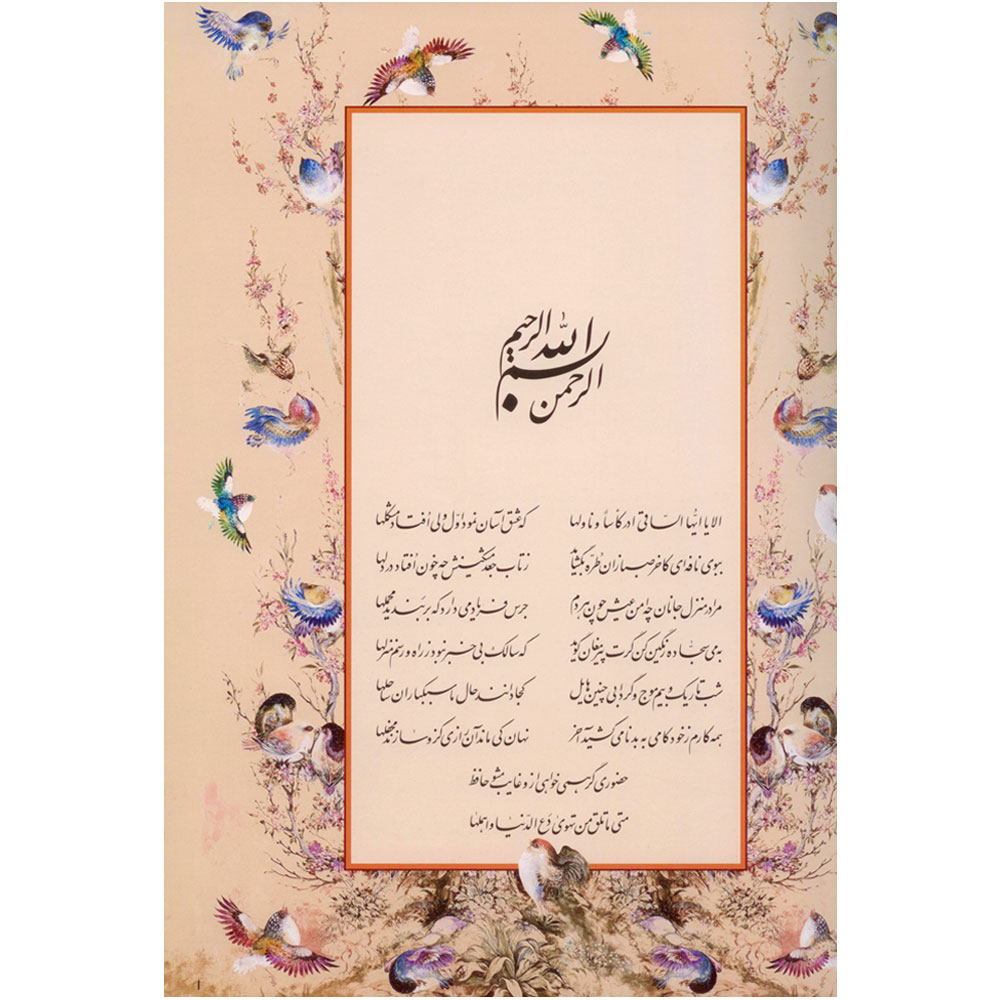 بسم الله الرحمن الرحیم
الا یا ایّها السّاقی ادر کأساً و ناولها که عشق آسان نمود اوّل ولی اُفتاد مشکلها
ببوی نافه‌ای کاخر صبا زان طُرّه بگشاید ز تاب جعد مشکینش چه خون اُفتاد در دلها
مرا در منزل جانان چه امن عیش چون هر دم جرس فریاد می دارد که بربندید محملها
بمی سجّاده رنگین کن گرت پیر مغان گوید که سالک بی خبر نبود ز راه و رسم منزلها
شب تاریک و بیم موج و گردابی چنین هایل کجا دانند حال ما سبکباران ساحلها
همه کارم ز خود کامی به بدنامی کشید آخر نهان کی ماند آن رازی کزو سازند محفلها
حضوری گر همی خواهی ازو غایب مشو حافظ
متی ما تلق من تهوی دَعِ الدّنیا و اهملها
۱